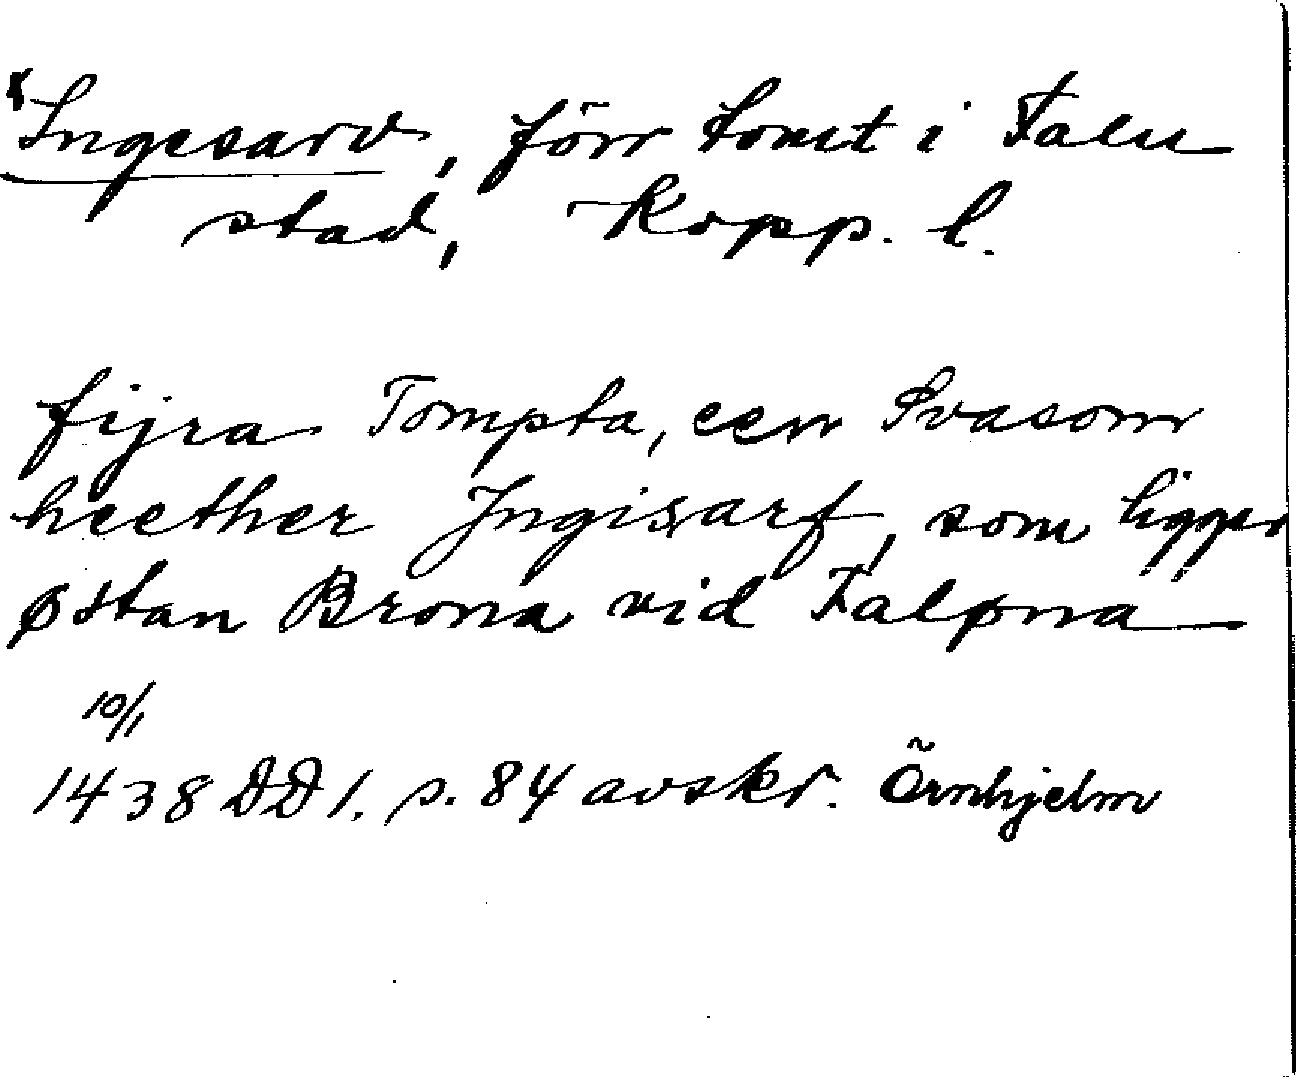 *Ingesarv, förr tomt i Falu
stad, Kopp. l.
fijra Tompta, een Svasom
heether Jngisarf, som ligger
østan Brona vid Faløna
10/1
1438 DD 1. s. 84 avskr. Örnhjelm